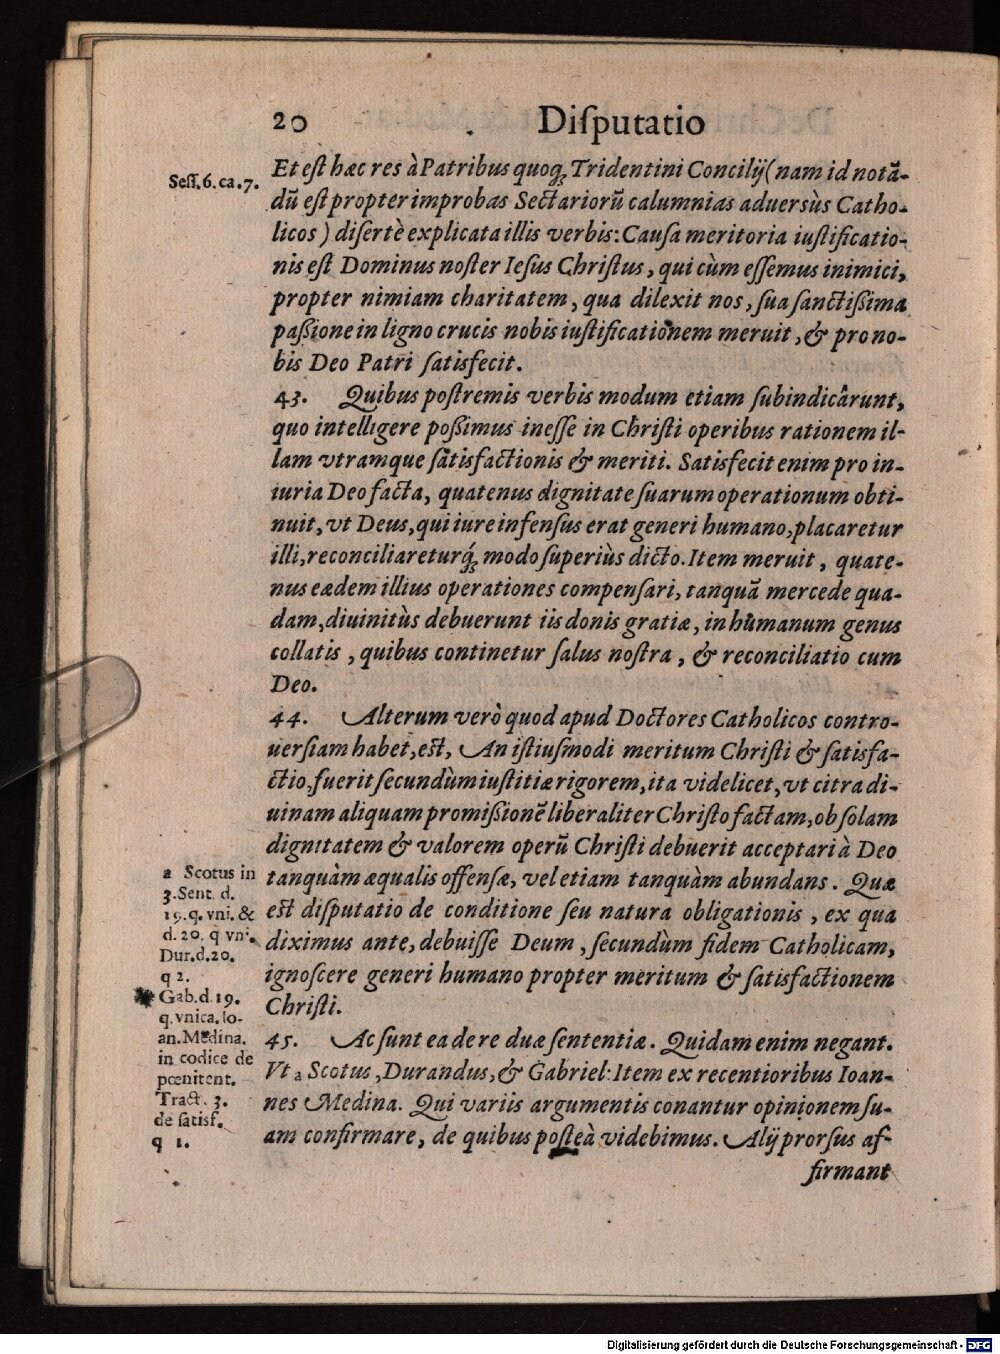 20 Diſputatio
Seſſ. 6. ca. 7.
Et eſt hæc res à Patribus quoq́; Tridentini Concilij (nam id notā-
dū eſt propter improbas Sectariorū calumnias aduersùs Catho-
licos) diſertè explicata illis verbis: Cauſa meritoria iuſtificatio-
nis eſt Dominus noſter Ieſus Chriſtus, qui cùm eſſemus inimici,
propter nimiam charitatem, qua dilexit nos, ſua ſanctiſſima
paſſione in ligno crucis nobis iuſtificationem meruit, & pro no-
bis Deo Patri ſatisfecit.
43. Quibus poſtremis verbis modum etiam ſubindicârunt,
quo intelligere poſſimus ineſſe in Chriſti operibus rationem il-
lam vtramque ſatisfactionis & meriti. Satisfecit enim pro in-
iuria Deo facta, quatenus dignitate ſuarum operationum obti-
nuit, vt Deus, qui iure infenſus erat generi humano, placaretur
illi, reconciliareturq́; modo ſuperiùs dicto. Item meruit, quate-
nus eædem illius operationes compenſari, tanquā mercede qua-
dam, diuinitùs debuerunt iis donis gratiæ, in humanum genus
collatis, quibus continetur ſalus noſtra, & reconciliatio cum
Deo.
44. Alterum verò quod apud Doctores Catholicos contro-
uerſiam habet, eſt, An iſtiuſmodi meritum Chriſti & ſatisfa-
ctio, fuerit ſecundùm iuſtitiæ rigorem, ita videlicet, vt citra di-
uinam aliquam promiſſionē liberaliter Chriſto factam, ob ſolam
dignitatem & valorem operū Chriſti debuerit acceptari à Deo
tanquàm æqualis offenſæ, vel etiam tanquàm abundans. Quæ
eſt diſputatio de conditione ſeu natura obligationis, ex qua
diximus ante, debuiſſe Deum, ſecundùm fidem Catholicam,
ignoſcere generi humano propter meritum & ſatisfactionem
Chriſti.
a Scotus in
3. Sent. d.
19. q. vni. &
d. 20. q vni.
Dur. d. 20.
q 2.
Gab. d. 19.
q. vnica. Io-
an. Medina.
in codice de
pœnitent.
Tract. 3.
de ſatisf.
q 1.
45. Ac ſunt ea de re duæ ſententiæ. Quidam enim negant.
Vt a Scotus, Durandus, & Gabriel: Item ex recentioribus Ioan-
nes Medina. Qui variis argumentis conantur opinionem ſu-
am confirmare, de quibus poſteà videbimus. Alij prorſus af-
firmant
Digitalisierung gefördert durch die Deutsche Forschungsgemeinschaft - DFG